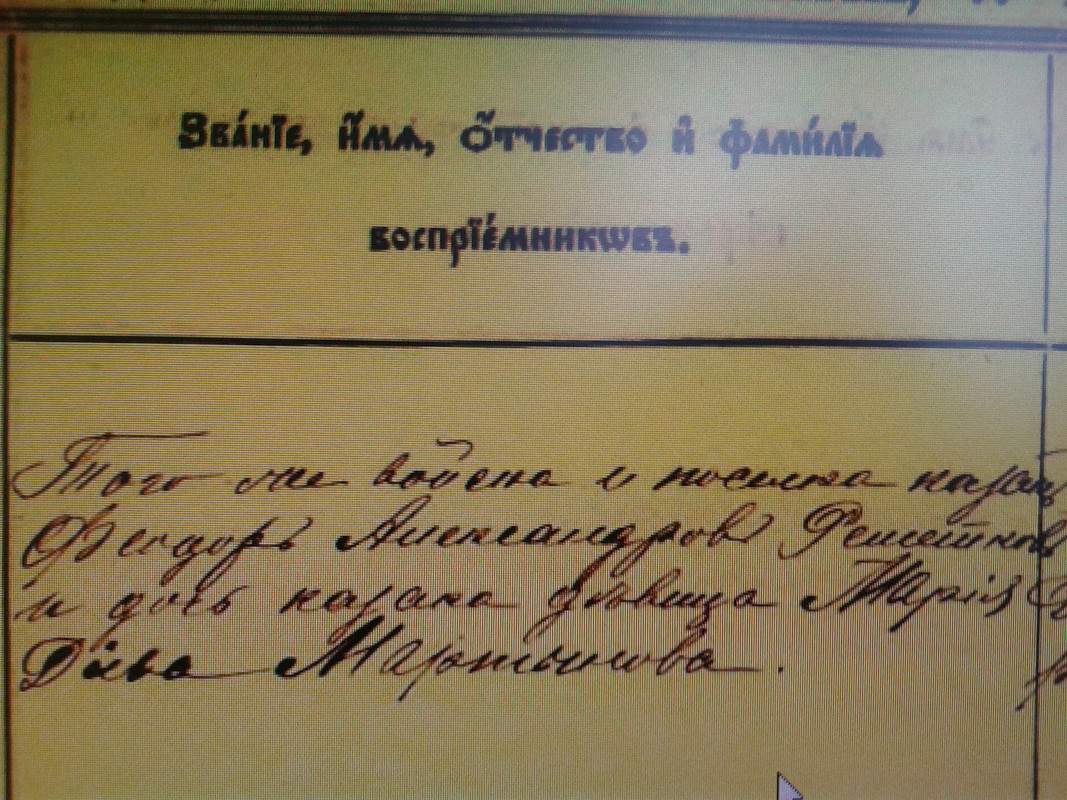 Зва́нїе, и҆́мѧ, Ѻ҆́тчество и҆ фами́лїѧ
воспрїе́мникѡвъ.
Того же войска и поселка казак
Феодоръ Александровъ Решетников
и дочь казака девица Марія
Мартынова.